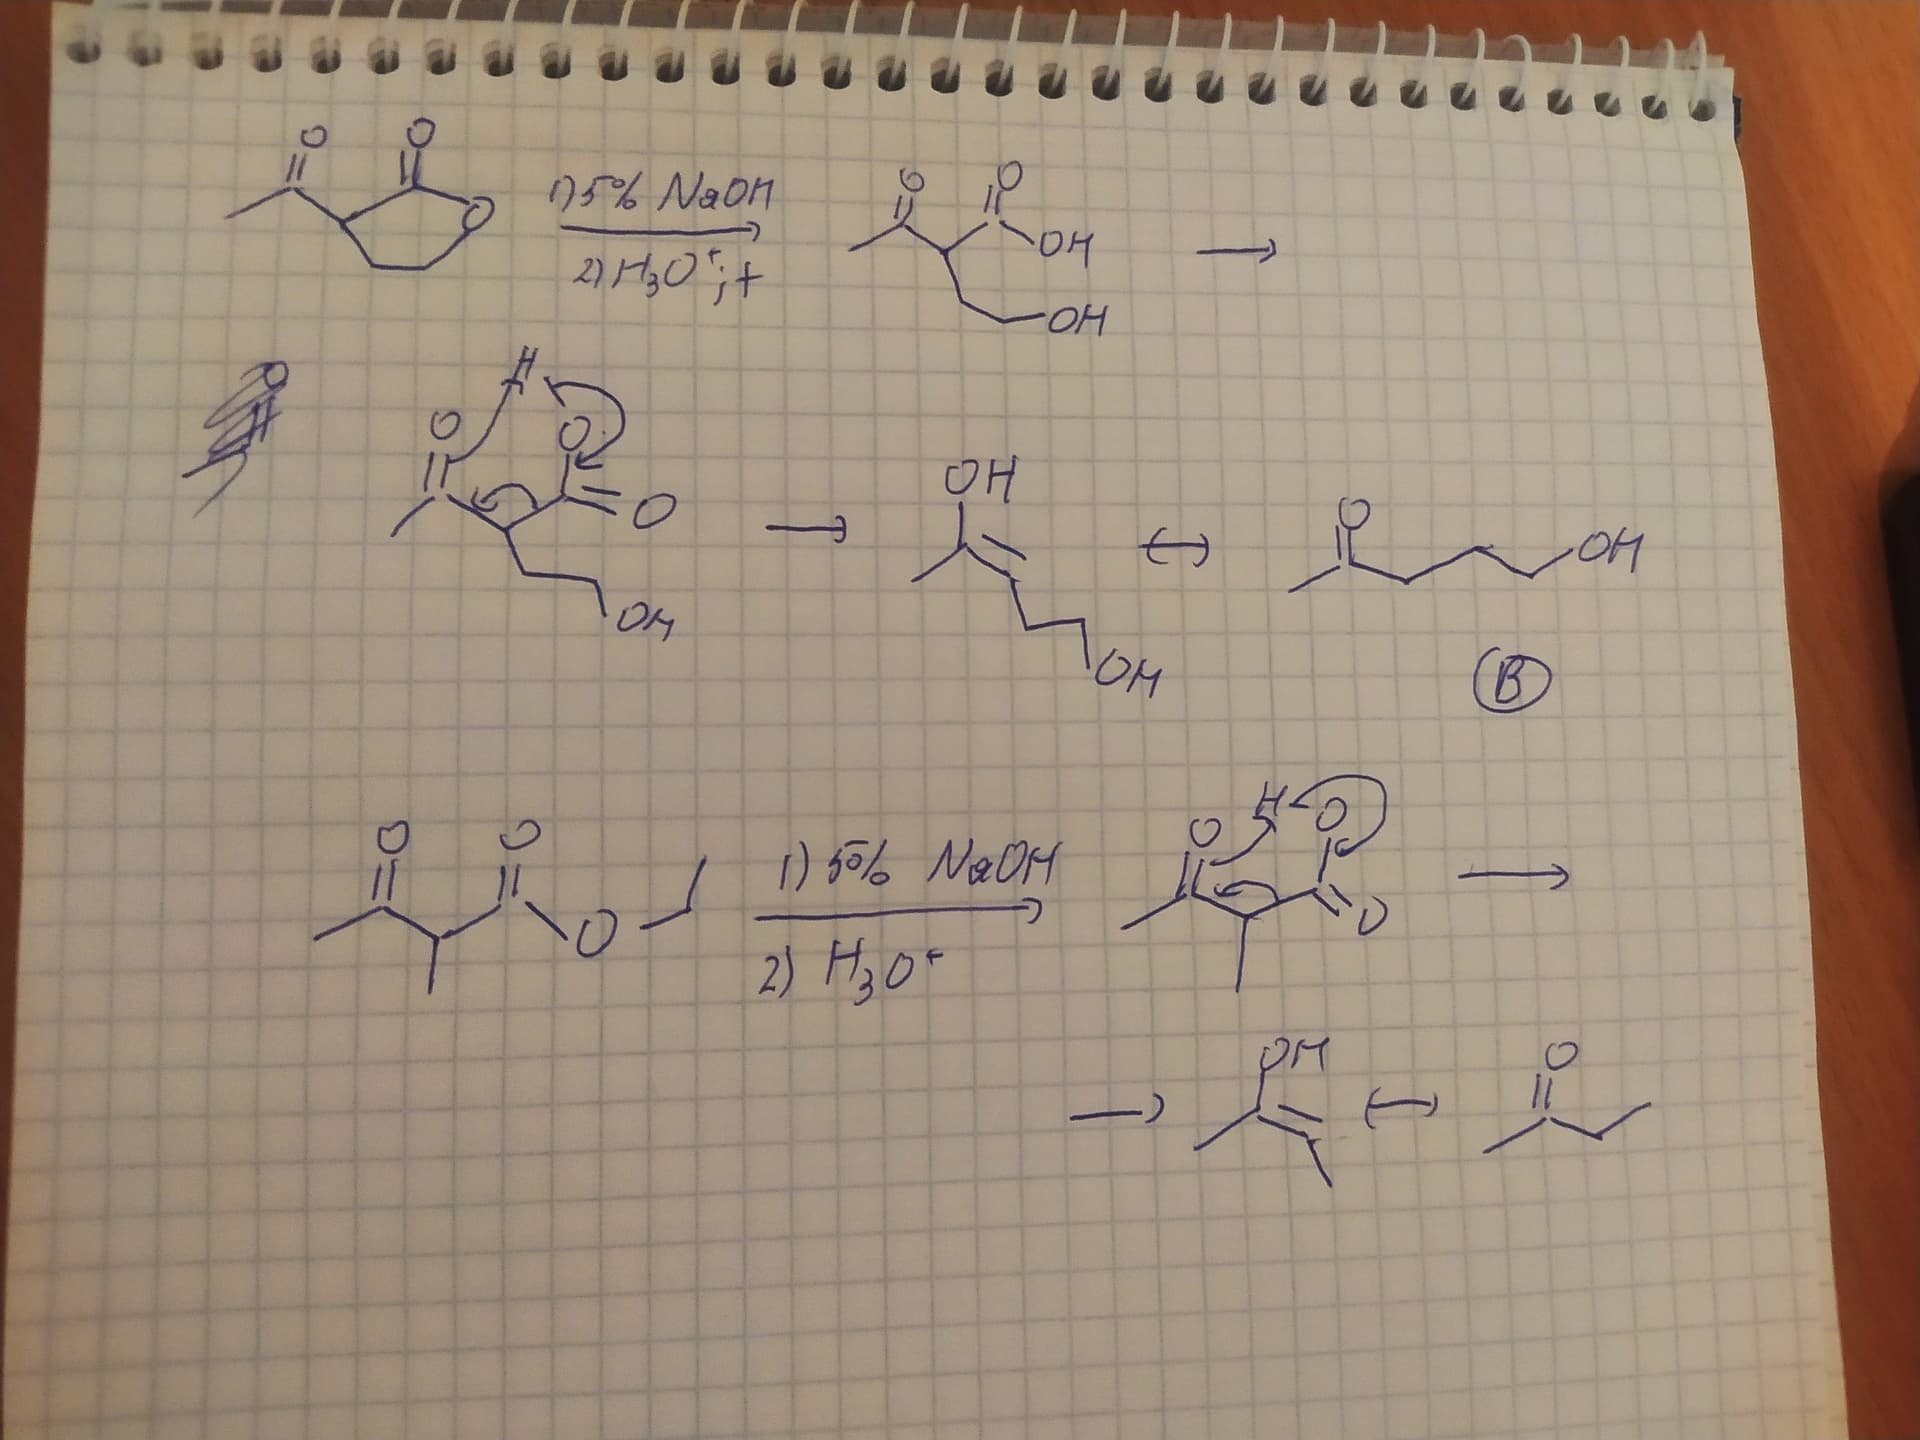 O O
O
1) 5% NaOH
2) H3O+; t
O O
OH
OH
H
O O
O
OH
OH
OH
O
OH
B
O O
O
1) 5% NaOH
2) H3O+
O H O
O
OH
O